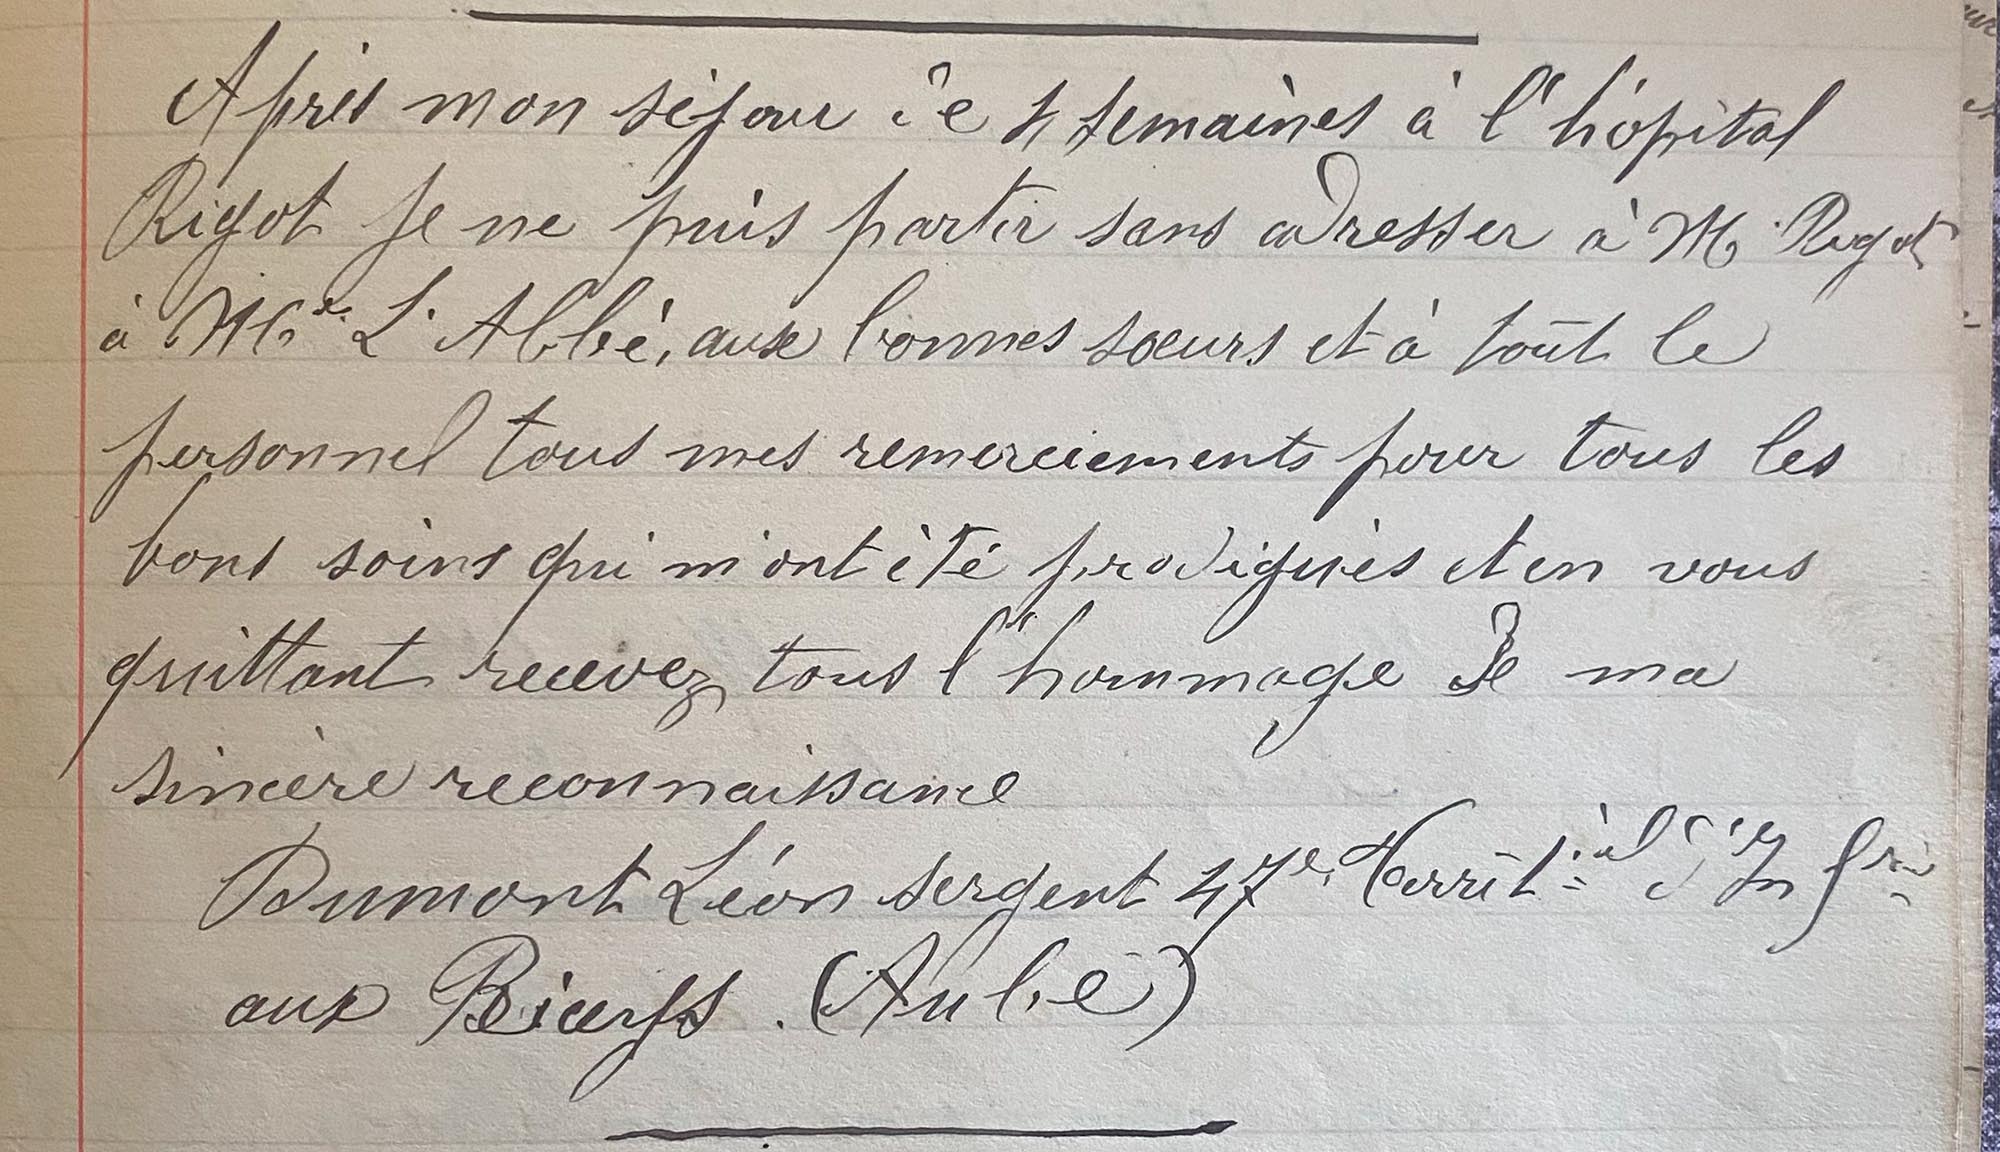 Après mon séjour de 4 semaines à l'hôpital
Rigot je ne puis partir sans adresser à M. Rigot
à Mr L'Abbé, aux bonnes sœurs et à tout le
personnel tous mes remerciements pour tous les
bons soins qui m'ont été prodigués et en vous
quittant recevez tous l'hommage de ma
sincère reconnaissance
Dumont Léon sergent 47e Territ.al d'Infrie
aux Riceys. (Aube)